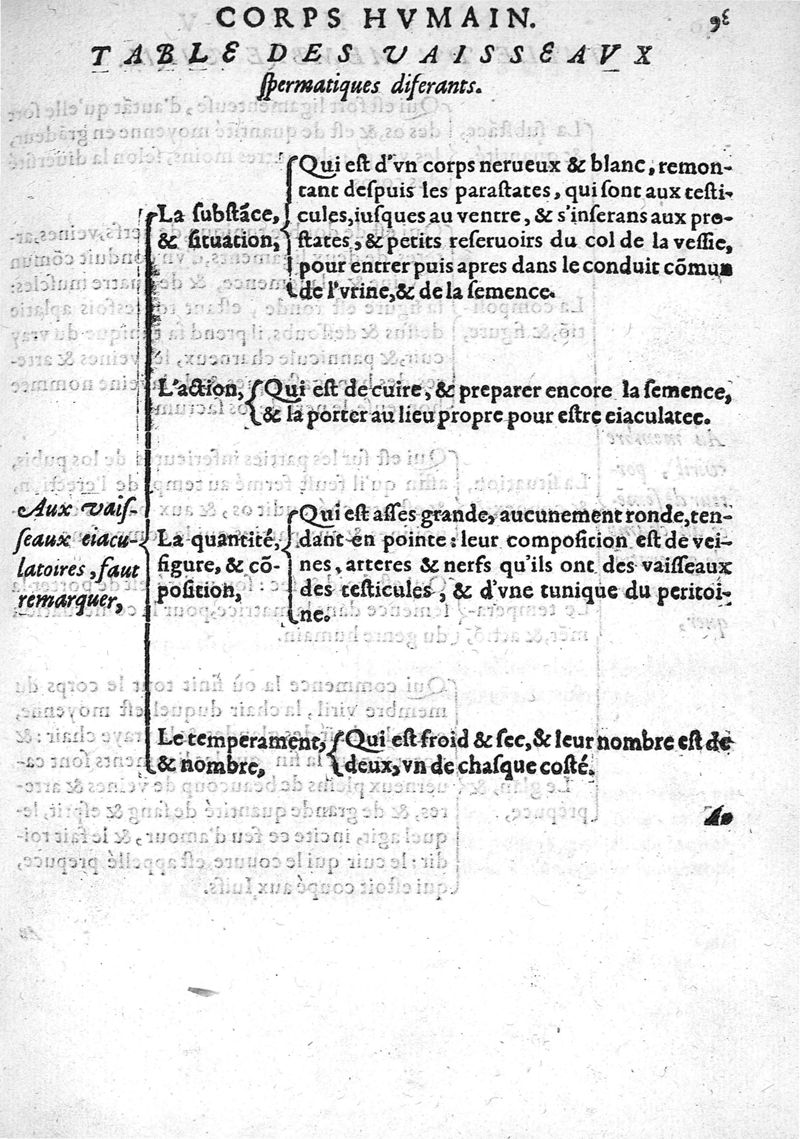 CORPS HVMAIN.
TABLE DES VAISSEAVX
ſpermatiques diferants.
Aux vaiſ-
ſeaux eiacu-
latoires, faut
remarquer,
La ſubſtāce,
& ſituation,
Qui eſt d'vn corps nerueux & blanc, remon-
tant deſpuis les paraſtates, qui ſont aux teſti-
cules, iuſques au ventre, & s'inſerans aux pro-
ſtates, & petits reſeruoirs du col de la veſſie,
pour entrer puis apres dans le conduit cōmun
de l'vrine, & de la ſemence.
L'action,
Qui eſt de cuire, & preparer encore la ſemence,
& la porter au lieu propre pour eſtre eiaculatee.
La quantité,
figure, & cō-
poſition,
Qui eſt aſſes grande, aucunement ronde, ten-
dant en pointe: leur compoſition eſt de vei-
nes, arteres & nerfs qu'ils ont des vaiſſeaux
des teſticules, & d'vne tunique du peritoi-
ne.
Le temperament,
& nombre,
Qui eſt froid & ſec, & leur nombre eſt de
deux, vn de chaſque coſté.